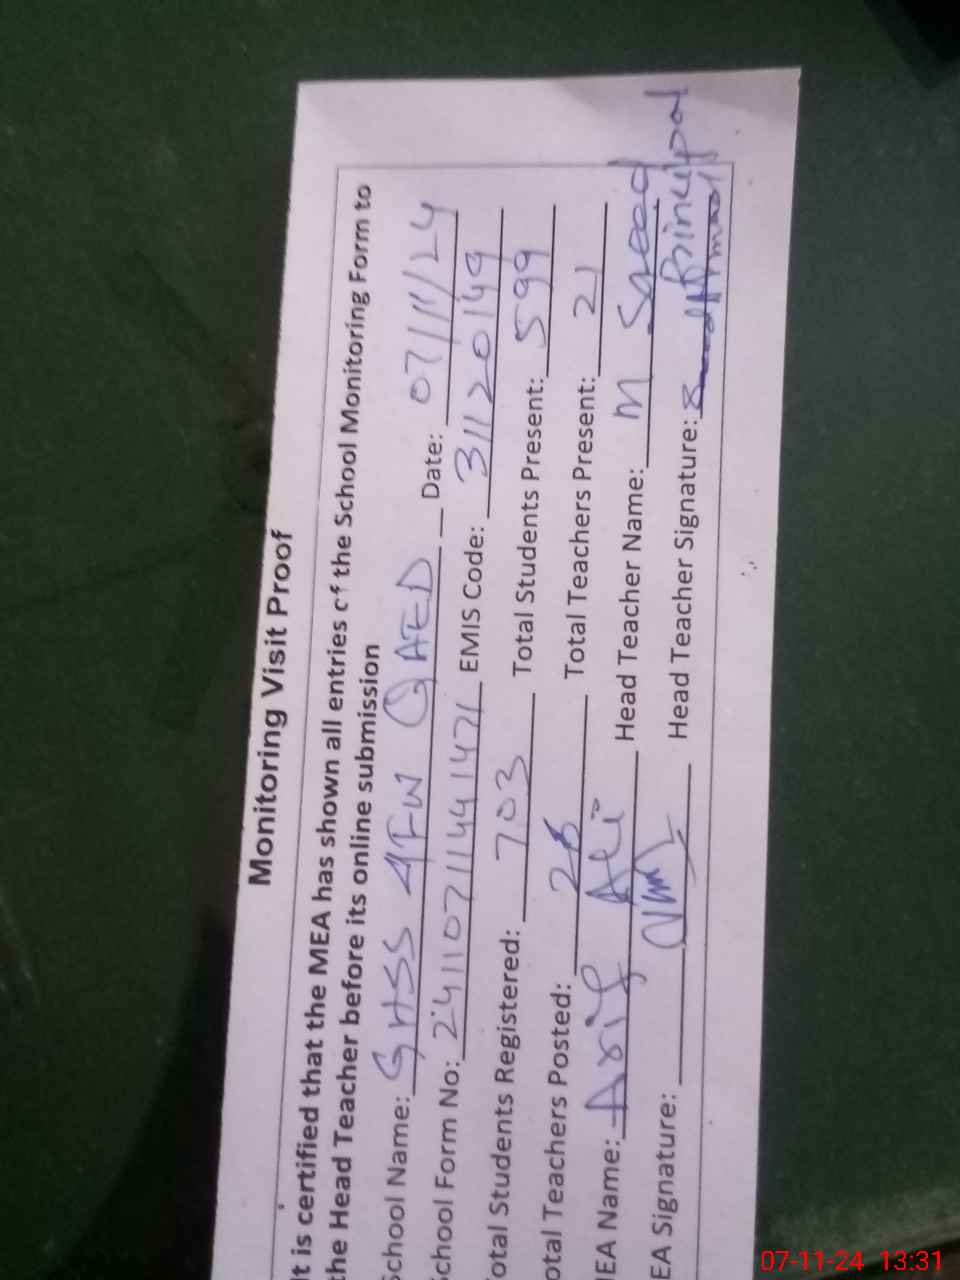 Monitoring Visit Proof
It is certified that the MEA has shown all entries of the School Monitoring Form to
the Head Teacher before its online submission
School Name: GHSS 4FW QAED Date: 07/11/24
School Form No: 24110711441471 EMIS Code: 31120149
otal Students Registered: 703 Total Students Present: 599
otal Teachers Posted: 26 Total Teachers Present: 21
EA Name: Arif Ali Head Teacher Name: M Saeed
EA Signature: Head Teacher Signature: Principal
07-11-24 13:31